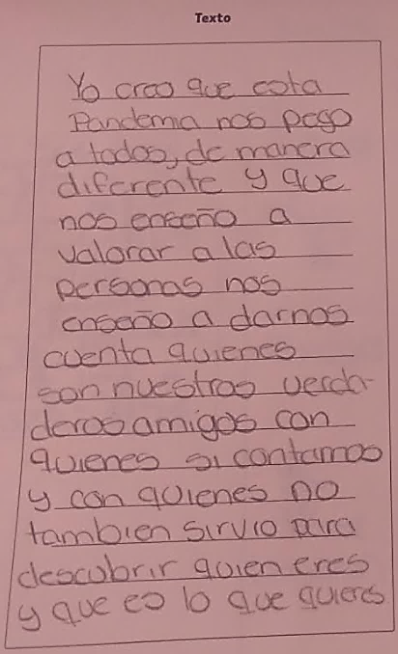 Texto
Yo creo que esta
Pandemia nos pego
a todos, de manera
diferente y que
nos enseño a
valorar a las
personas nos
enseño a darnos
cuenta quienes
son nuestros verda-
deros amigos con
quienes si contamos
y con quienes no
tambien sirvio para
descubrir quien eres
y que es lo que quieres